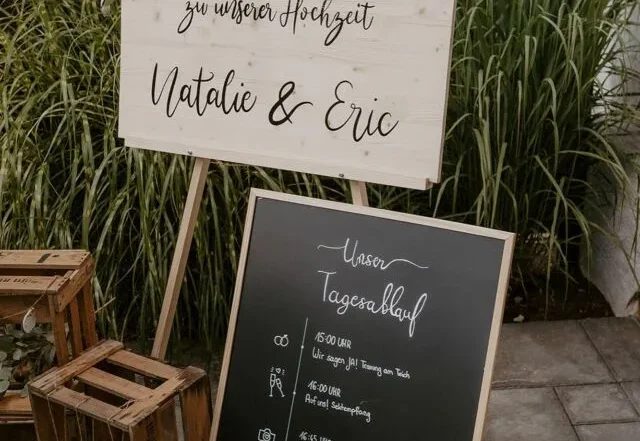 zu unserer Hochzeit
Natalie & Eric
Unser
Tagesablauf
15:00 UHR
Wir sagen JA! Trauung am Teich
16:00 UHR
Auf uns! Sektempfang
16:45 UHR